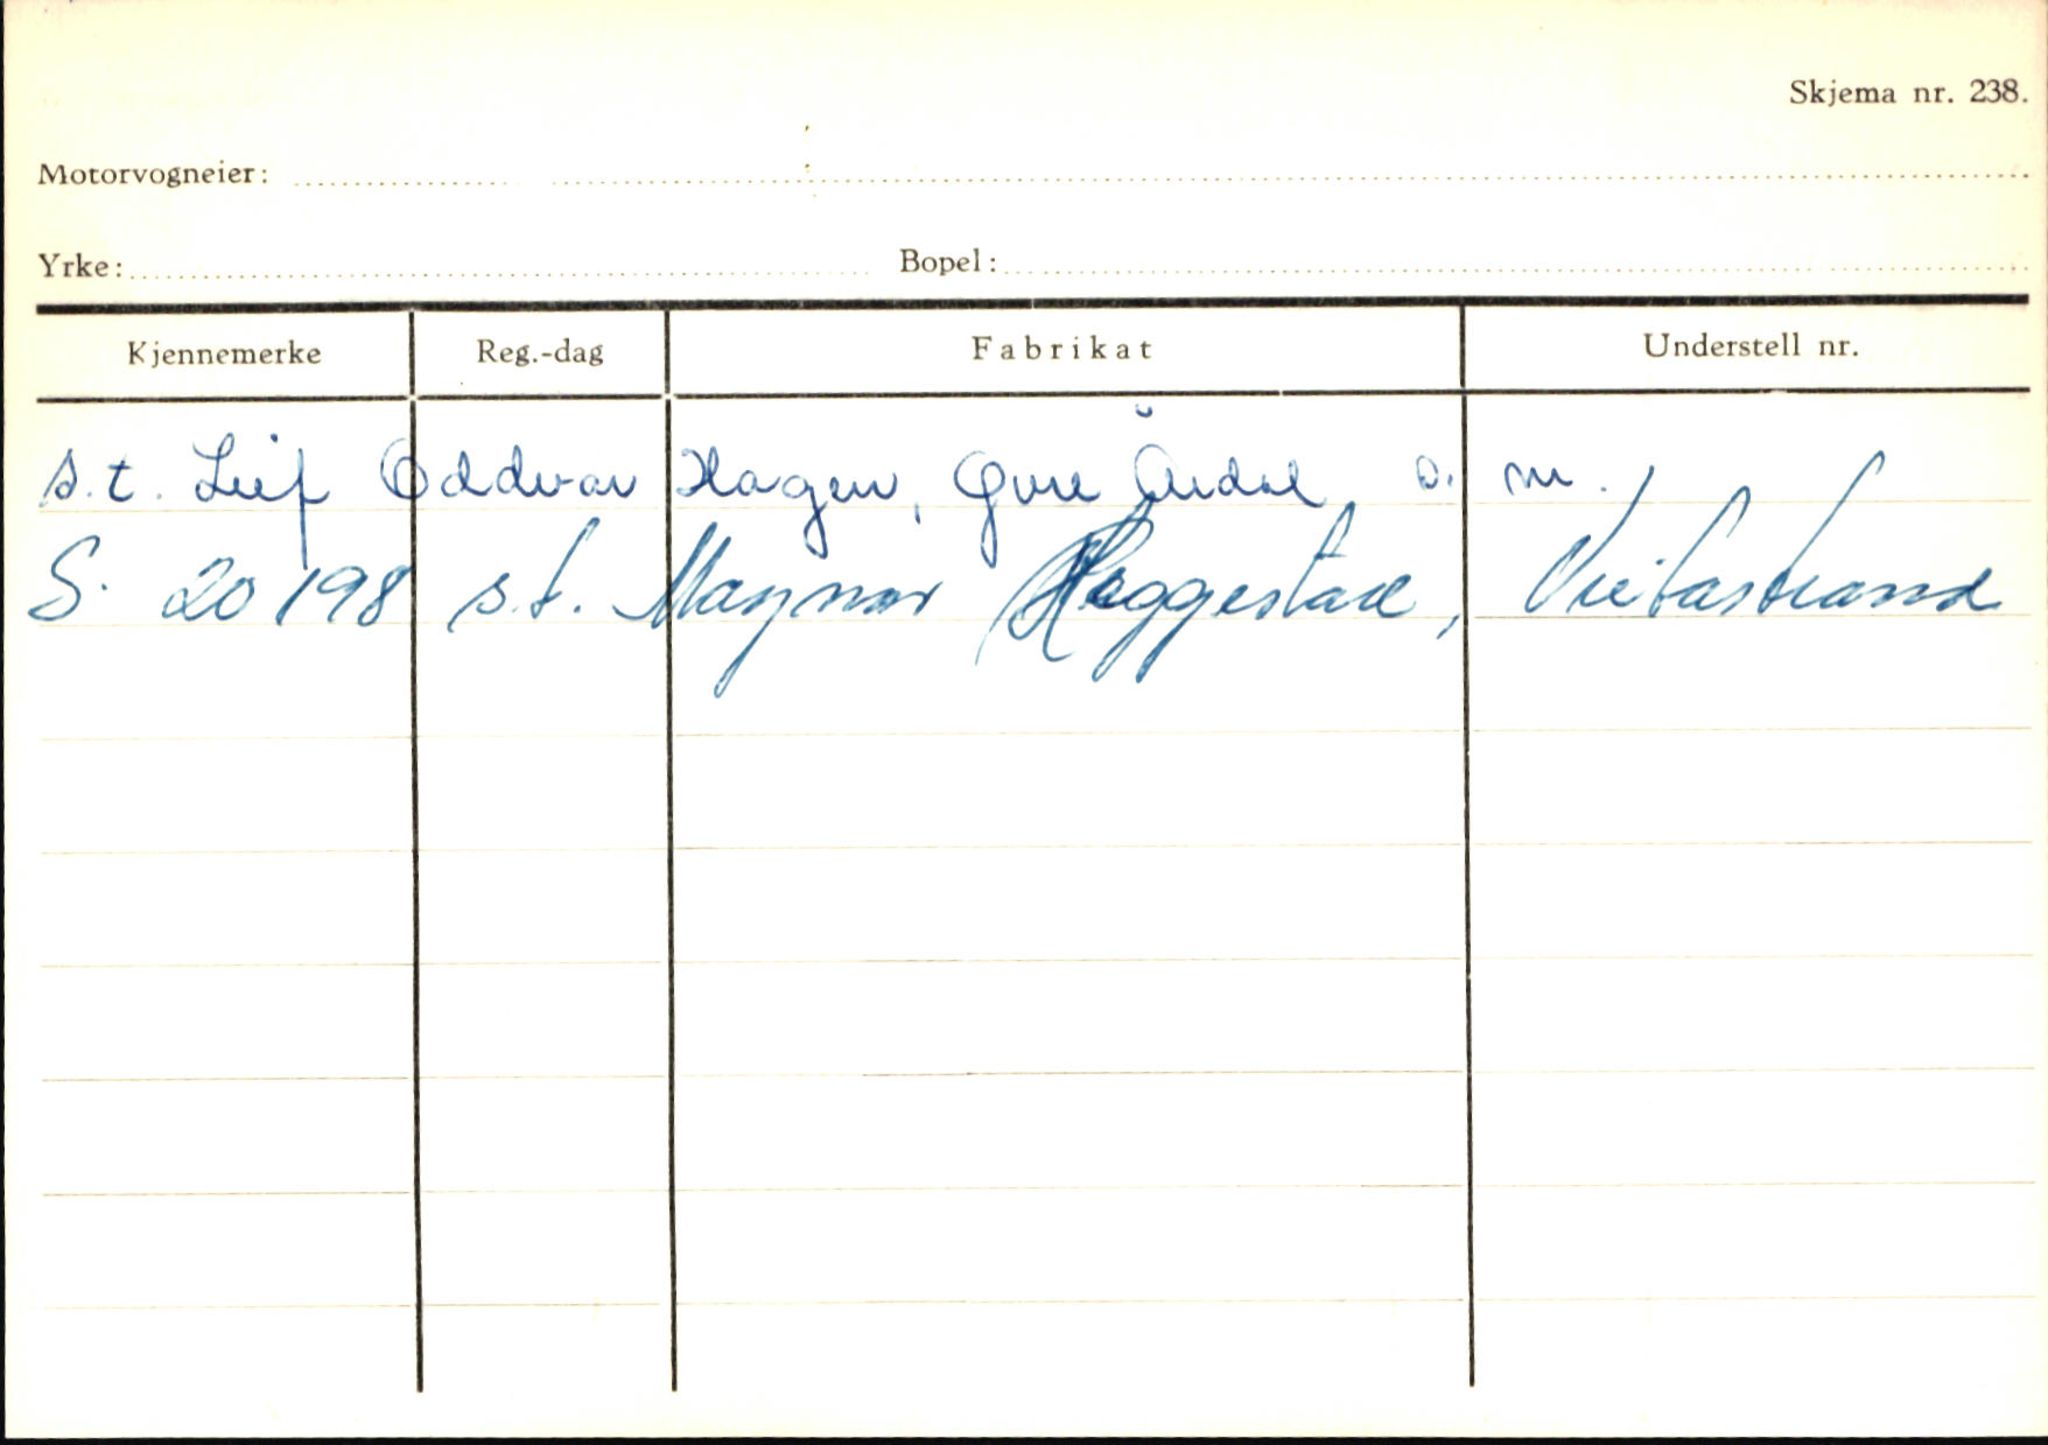 Skjema nr. 238.
Motorvogneier:
Yrke: Bopel:
Kjennemerke Reg.-dag Fabrikat Understell nr.
s.t. Leif Oddvar Hagen, Øvre Årdal o. m.
S. 20198 s.t. Magnar Heggestad, Veitastrand